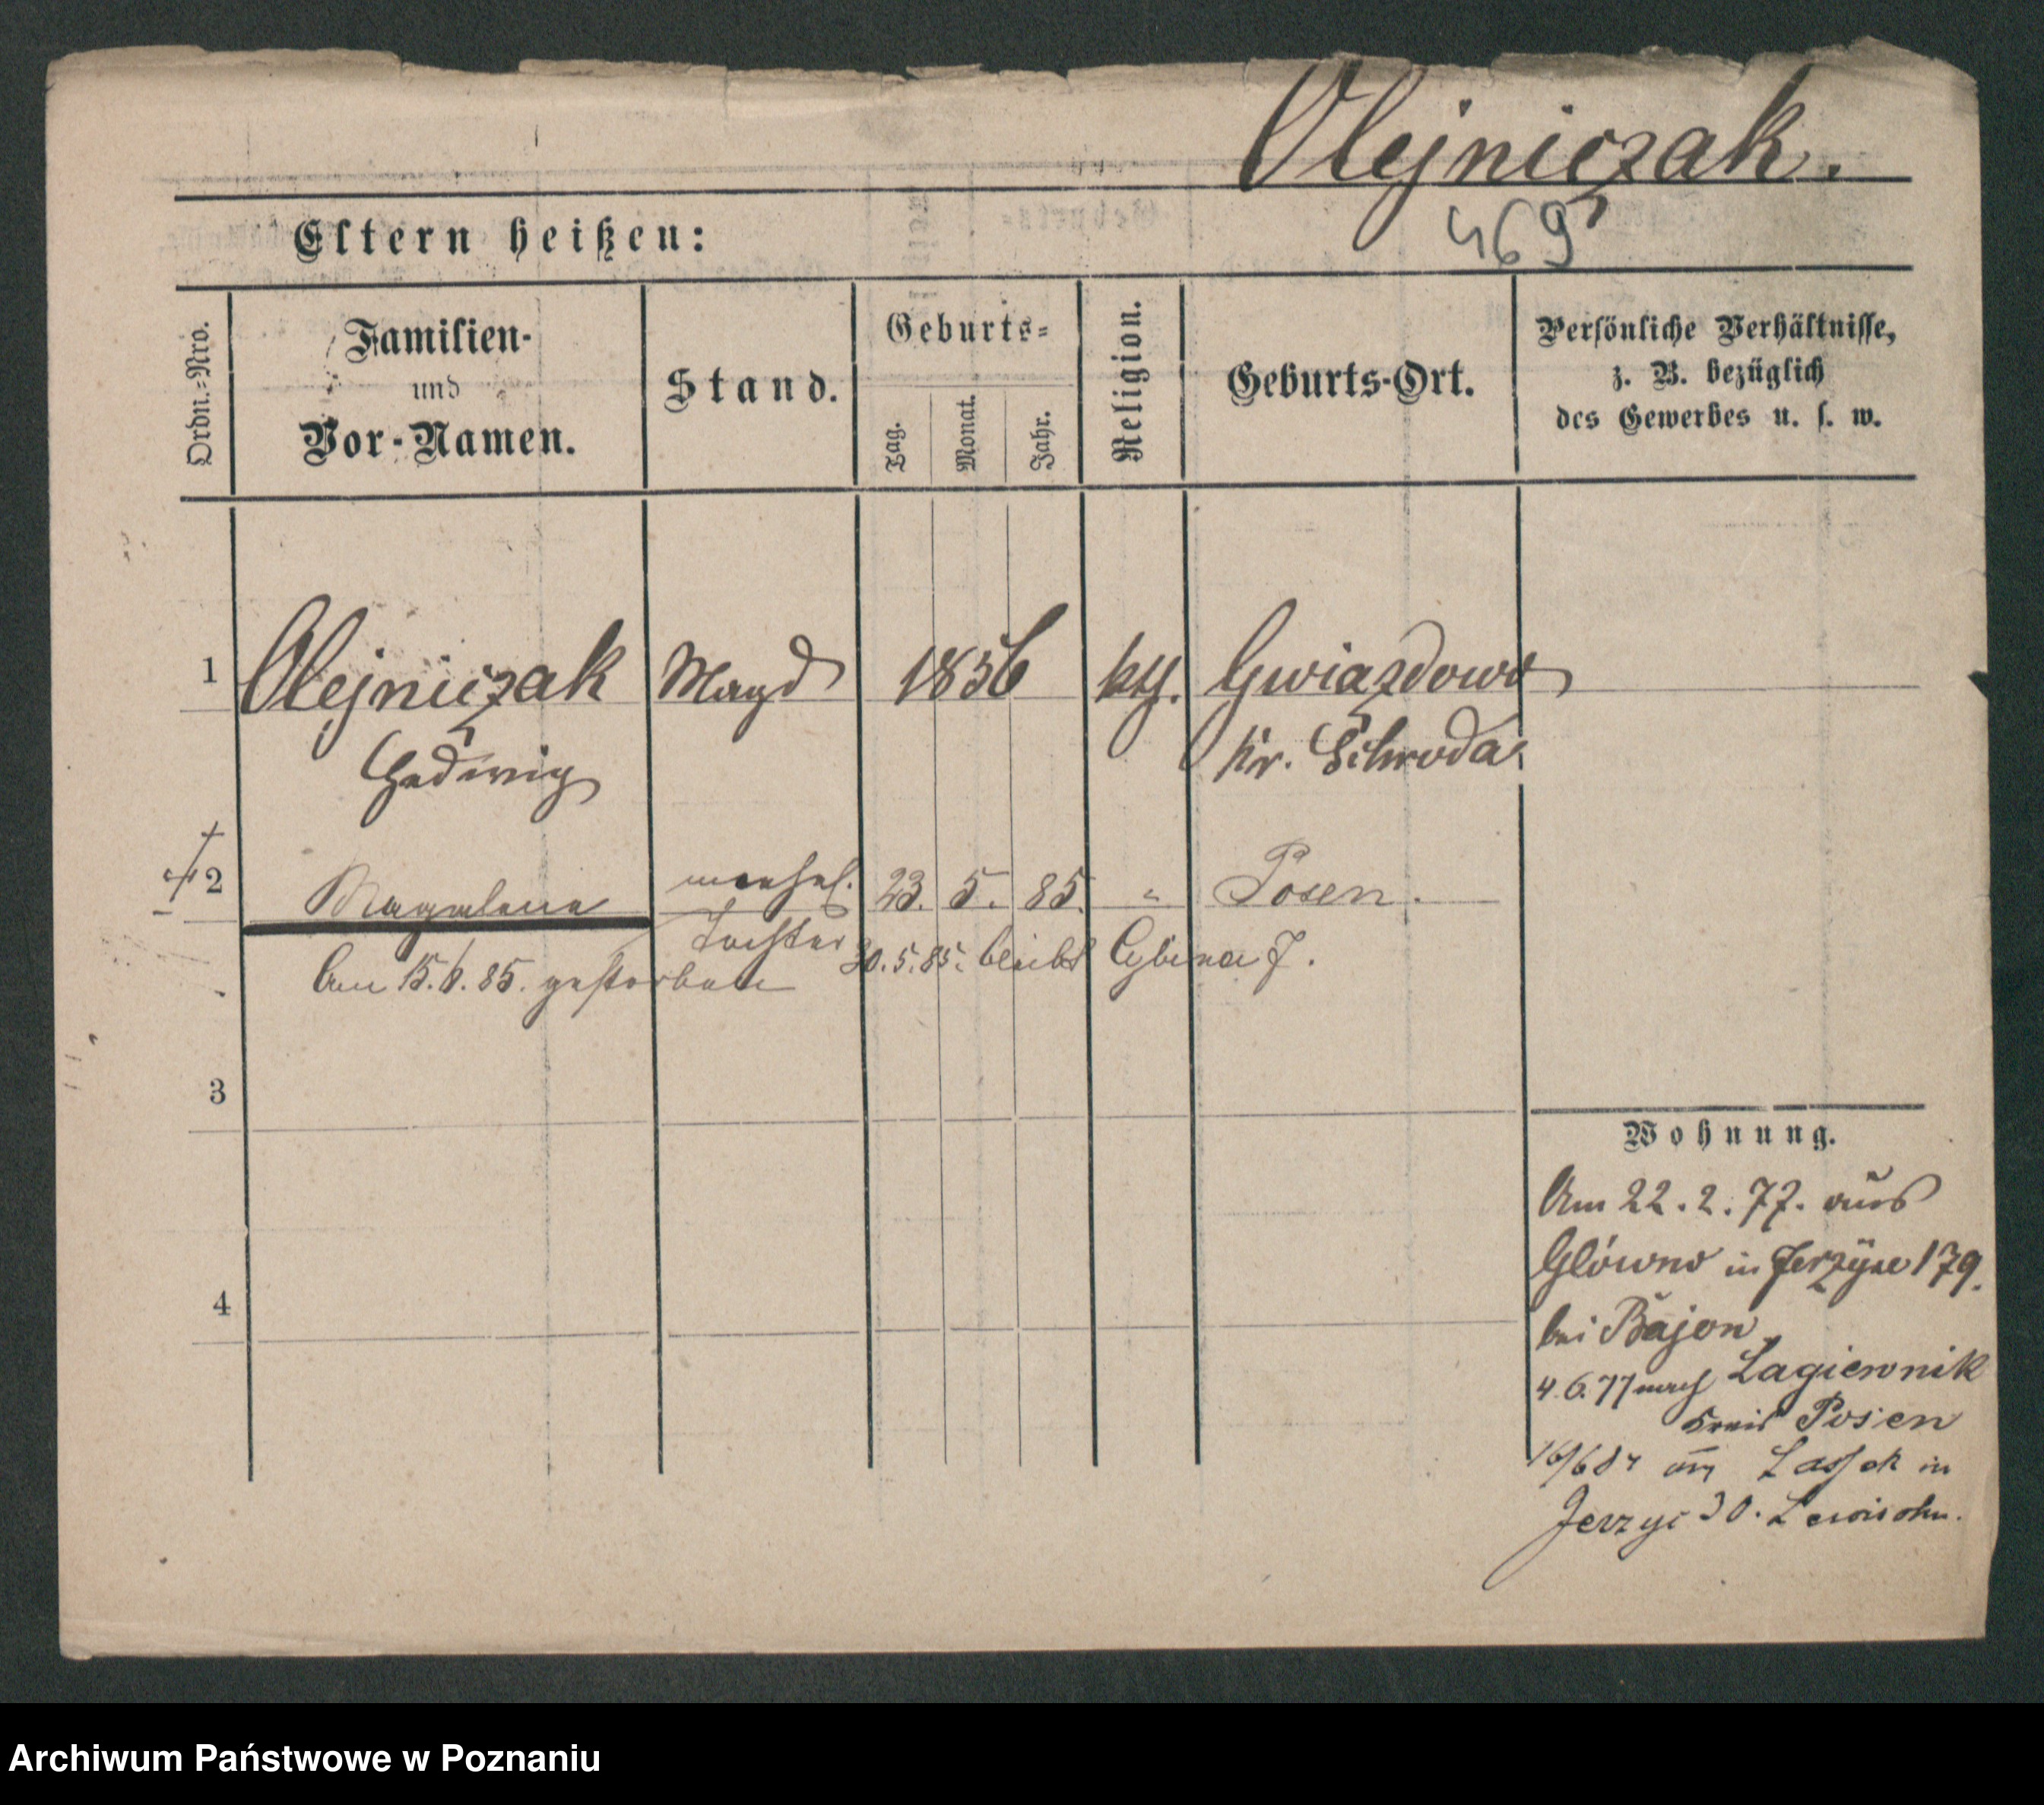 Olejniczak.
469
Eltern heißen:
Ordn.=Nro.
Familien-
und
Vor-Namen.
Stand.
Geburts=
Tag.
Monat.
Jahr.
Religion.
Geburts-Ort.
Persönliche Verhältnisse,
z. B. bezüglich
des Gewerbes u. s. w.
1 Olejniczak Magd 1856 kth. Gwiazdowo
Hedwig Kr. Schroda
2 Magdalena unehel. 23. 5. 85. " Posen.
Tochter 30.5.85. bleibt Cybina 7.
Am 15.6.85. gestorben
3
4
Wohnung.
Am 22.2.77. aus
Glówno in Jerzyce 179.
bei Bajon
4.6.77 nach Lagiewnik
Kreis Posen
in
Jerzyc 30. Lewisohn.
Archiwum Państwowe w Poznaniu